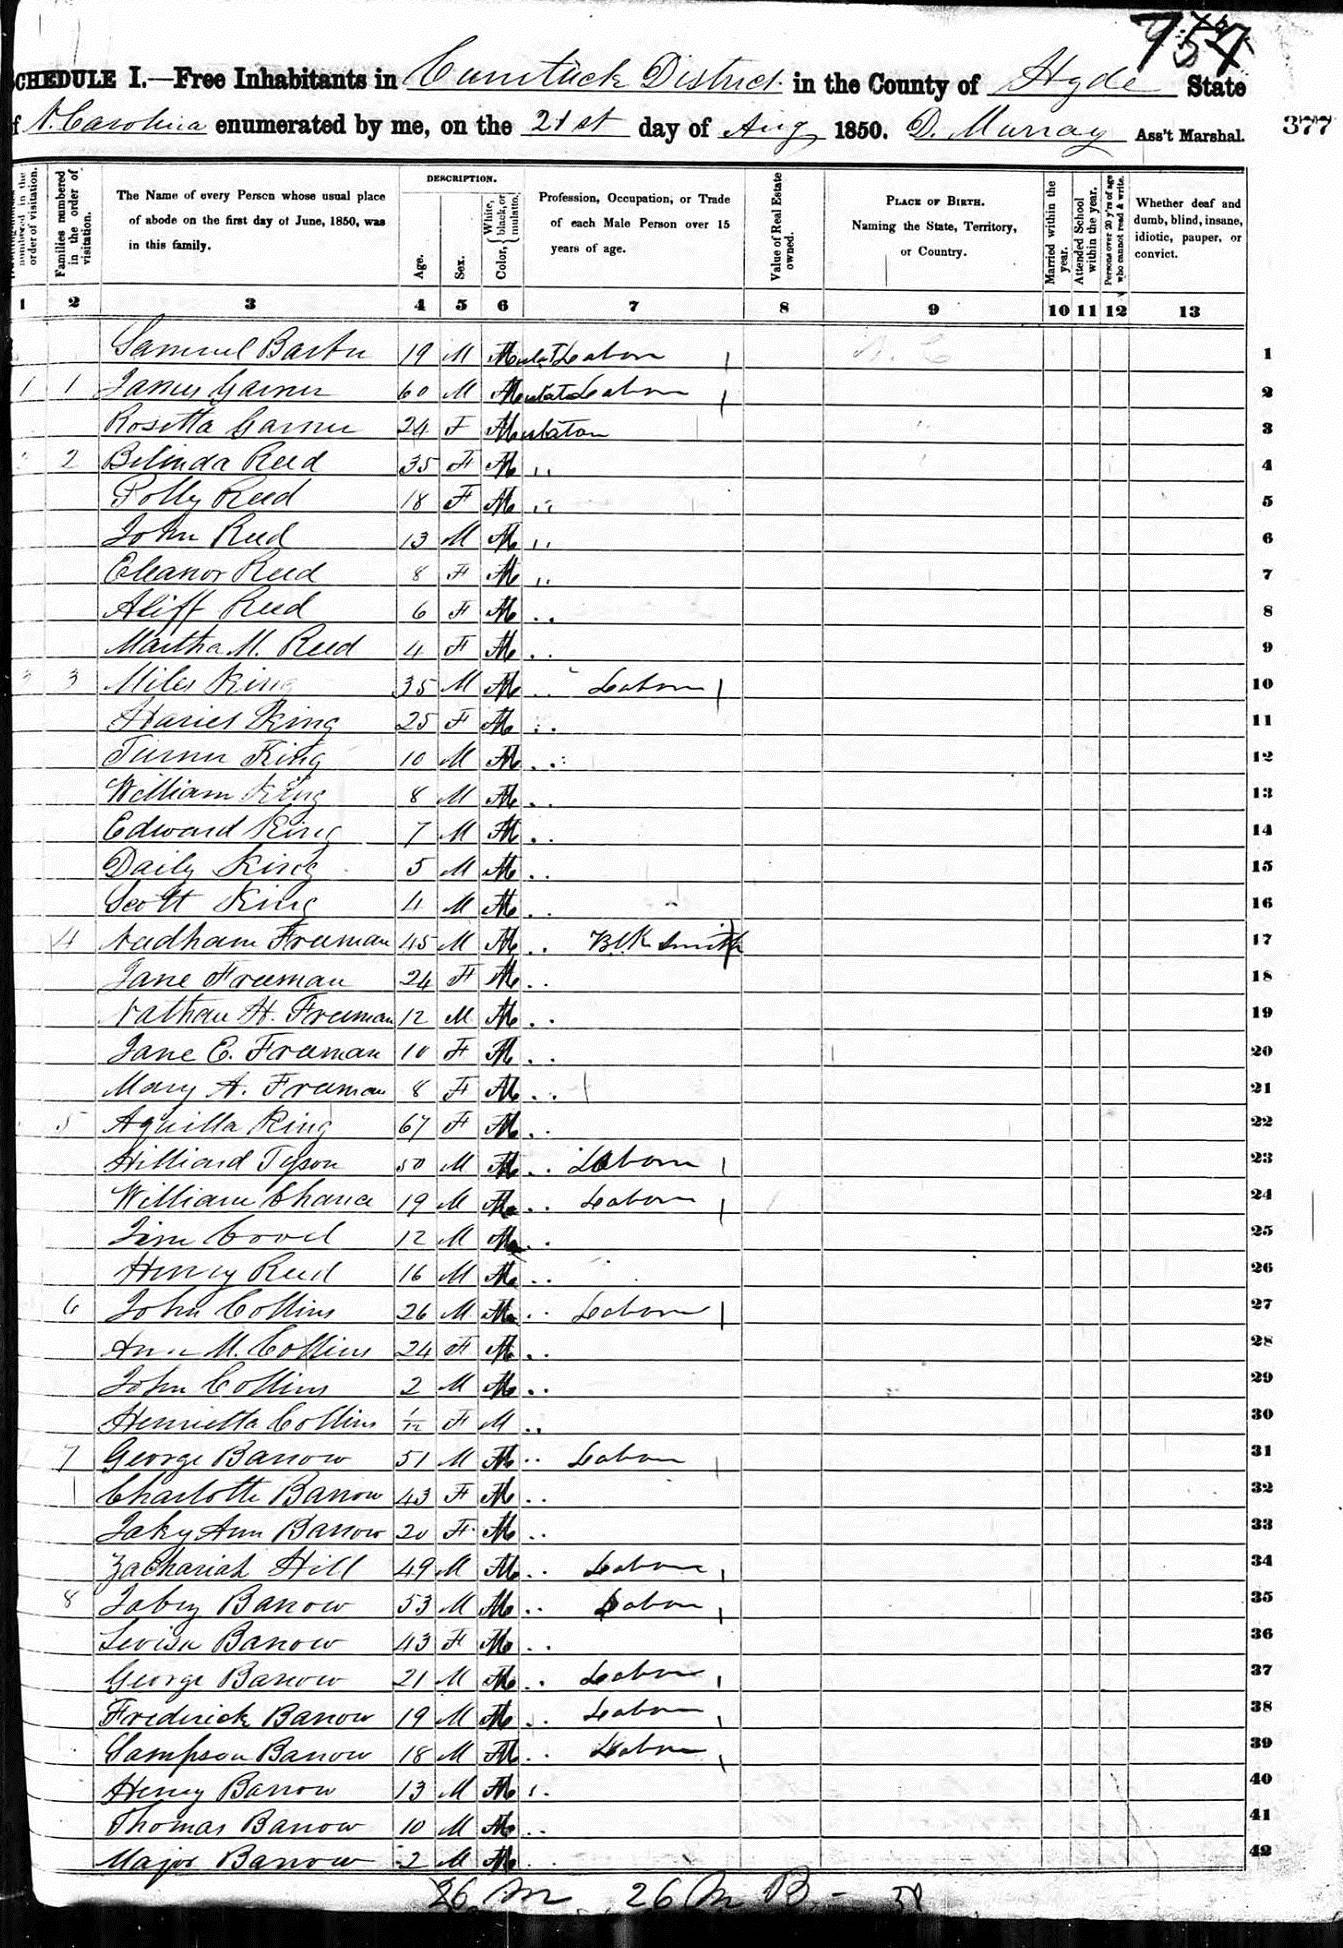 754
SCHEDULE I.—Free Inhabitants in Currituck District in the County of Hyde State
of N. Carolina enumerated by me, on the 21st day of Aug 1850. D. Murray Ass't Marshal. 377
numbered in the order of visitation.
Families numbered in the order of visitation.
The Name of every Person whose usual place of abode on the first day of June, 1850, was in this family.
DESCRIPTION.
Age.
Sex.
Color, {White, black, or mulatto.
Profession, Occupation, or Trade of each Male Person over 15 years of age.
Value of Real Estate owned.
PLACE OF BIRTH. Naming the State, Territory, or Country.
Married within the year.
Attended School within the year.
Persons over 20 y'rs of age who cannot read & write.
Whether deaf and dumb, blind, insane, idiotic, pauper, or convict.
1 2 3 4 5 6 7 8 9 10 11 12 13
Samuel 19 M Mulat Labor N. C 1
1 1 James Garner 60 M Mulato Labor 2
Rosetta Garner 24 F Mulatto 3
2 Belinda Reed 35 F M " 4
Polly Reed 18 F M " 5
John Reed 13 M M " 6
Eleanor Reed 8 F M " 7
Aliff Reed 6 F M .. 8
Martha M. Reed 4 F M .. 9
3 3 Miles King 35 M M .. Labor 10
Hariet King 25 F M .. 11
Turner King 10 M M .. 12
William King 8 M M .. 13
Edward King 7 M M .. 14
Daily King 5 M M .. 15
Scott King 4 M M .. 16
4 Needham Freeman 45 M M .. Blk Smith 17
Jane Freeman 24 F M .. 18
Nathan H. Freeman 12 M M .. 19
Jane E. Freeman 10 F M .. 20
Mary A. Freeman 8 F M .. 21
5 Aquilla King 67 F M .. 22
Hilliard Tyson 50 M M .. Labor 23
William Chance 19 M M .. Labor 24
Jim 12 M M .. 25
Henry Reed 16 M M .. 26
6 John Collins 26 M M .. Labor 27
Ann M. Collins 24 F M .. 28
John Collins 2 M M .. 29
Henrietta Collins 1/12 F M .. 30
7 George Barrow 51 M M .. Labor 31
Charlotte Barrow 43 F M .. 32
Jaky Ann Barrow 20 F M .. 33
Zachariah Hill 49 M M .. Labor 34
8 Barrow 53 M M .. Labor 35
Levisa Barrow 43 F M .. 36
George Barrow 21 M M .. Labor 37
Frederick Barrow 19 M M .. Labor 38
Sampson Barrow 18 M M .. Labor 39
Henry Barrow 13 M M .. 40
Thomas Barrow 10 M M .. 41
Major Barrow 2 M M .. 42
26 m 26 M B -